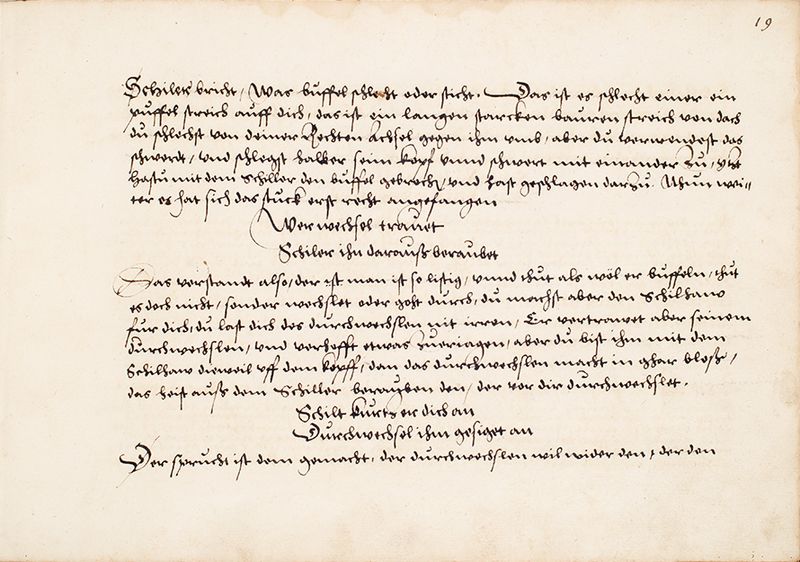 19
Schilers bricht, Was buffel schlecht oder sticht. Das ist es schlecht einer ein
puffel streich auff dich, das ist ein langen starcken bauren streich von dach
du schlechst von deiner Rechten Achsel gegen ihm umb, aber du verwendest das
schwerdt, und schlegst halber seim kopf unnd schwert mit einander zu, ytzt
hastu mit dem Schiller den buffel gebrochen, und hast geschlagen darzu. Nhun wei-
ter es hat sich das stuck erst recht angefangen
Wer wechsel trauet
Schiler ihn darauß beraubet
Das verstandt also, der ist man ist so listig, unnd thut als wöl er buffeln, thut
es doch nicht, sonder wechslet oder geht durch, du machst aber den Schilhaw
fur dich, du last dich des durchwechslen nit irren, Er vertrawet aber seinem
durchwechslen, und verhofft etwas zuerjagen, aber du bist ihm mit dem
Schilhaw dieweil uff dem kopff, dan das durchwechslen macht in ghar bloße,
das heist auß dem Schiller berauben den, der vor dir durchwechslet.
Schilt kurtz er dich an
Durchwechsel ihm gesiget an
Der spruch ist dem gemacht, der durchwechslen wil wider den, der den